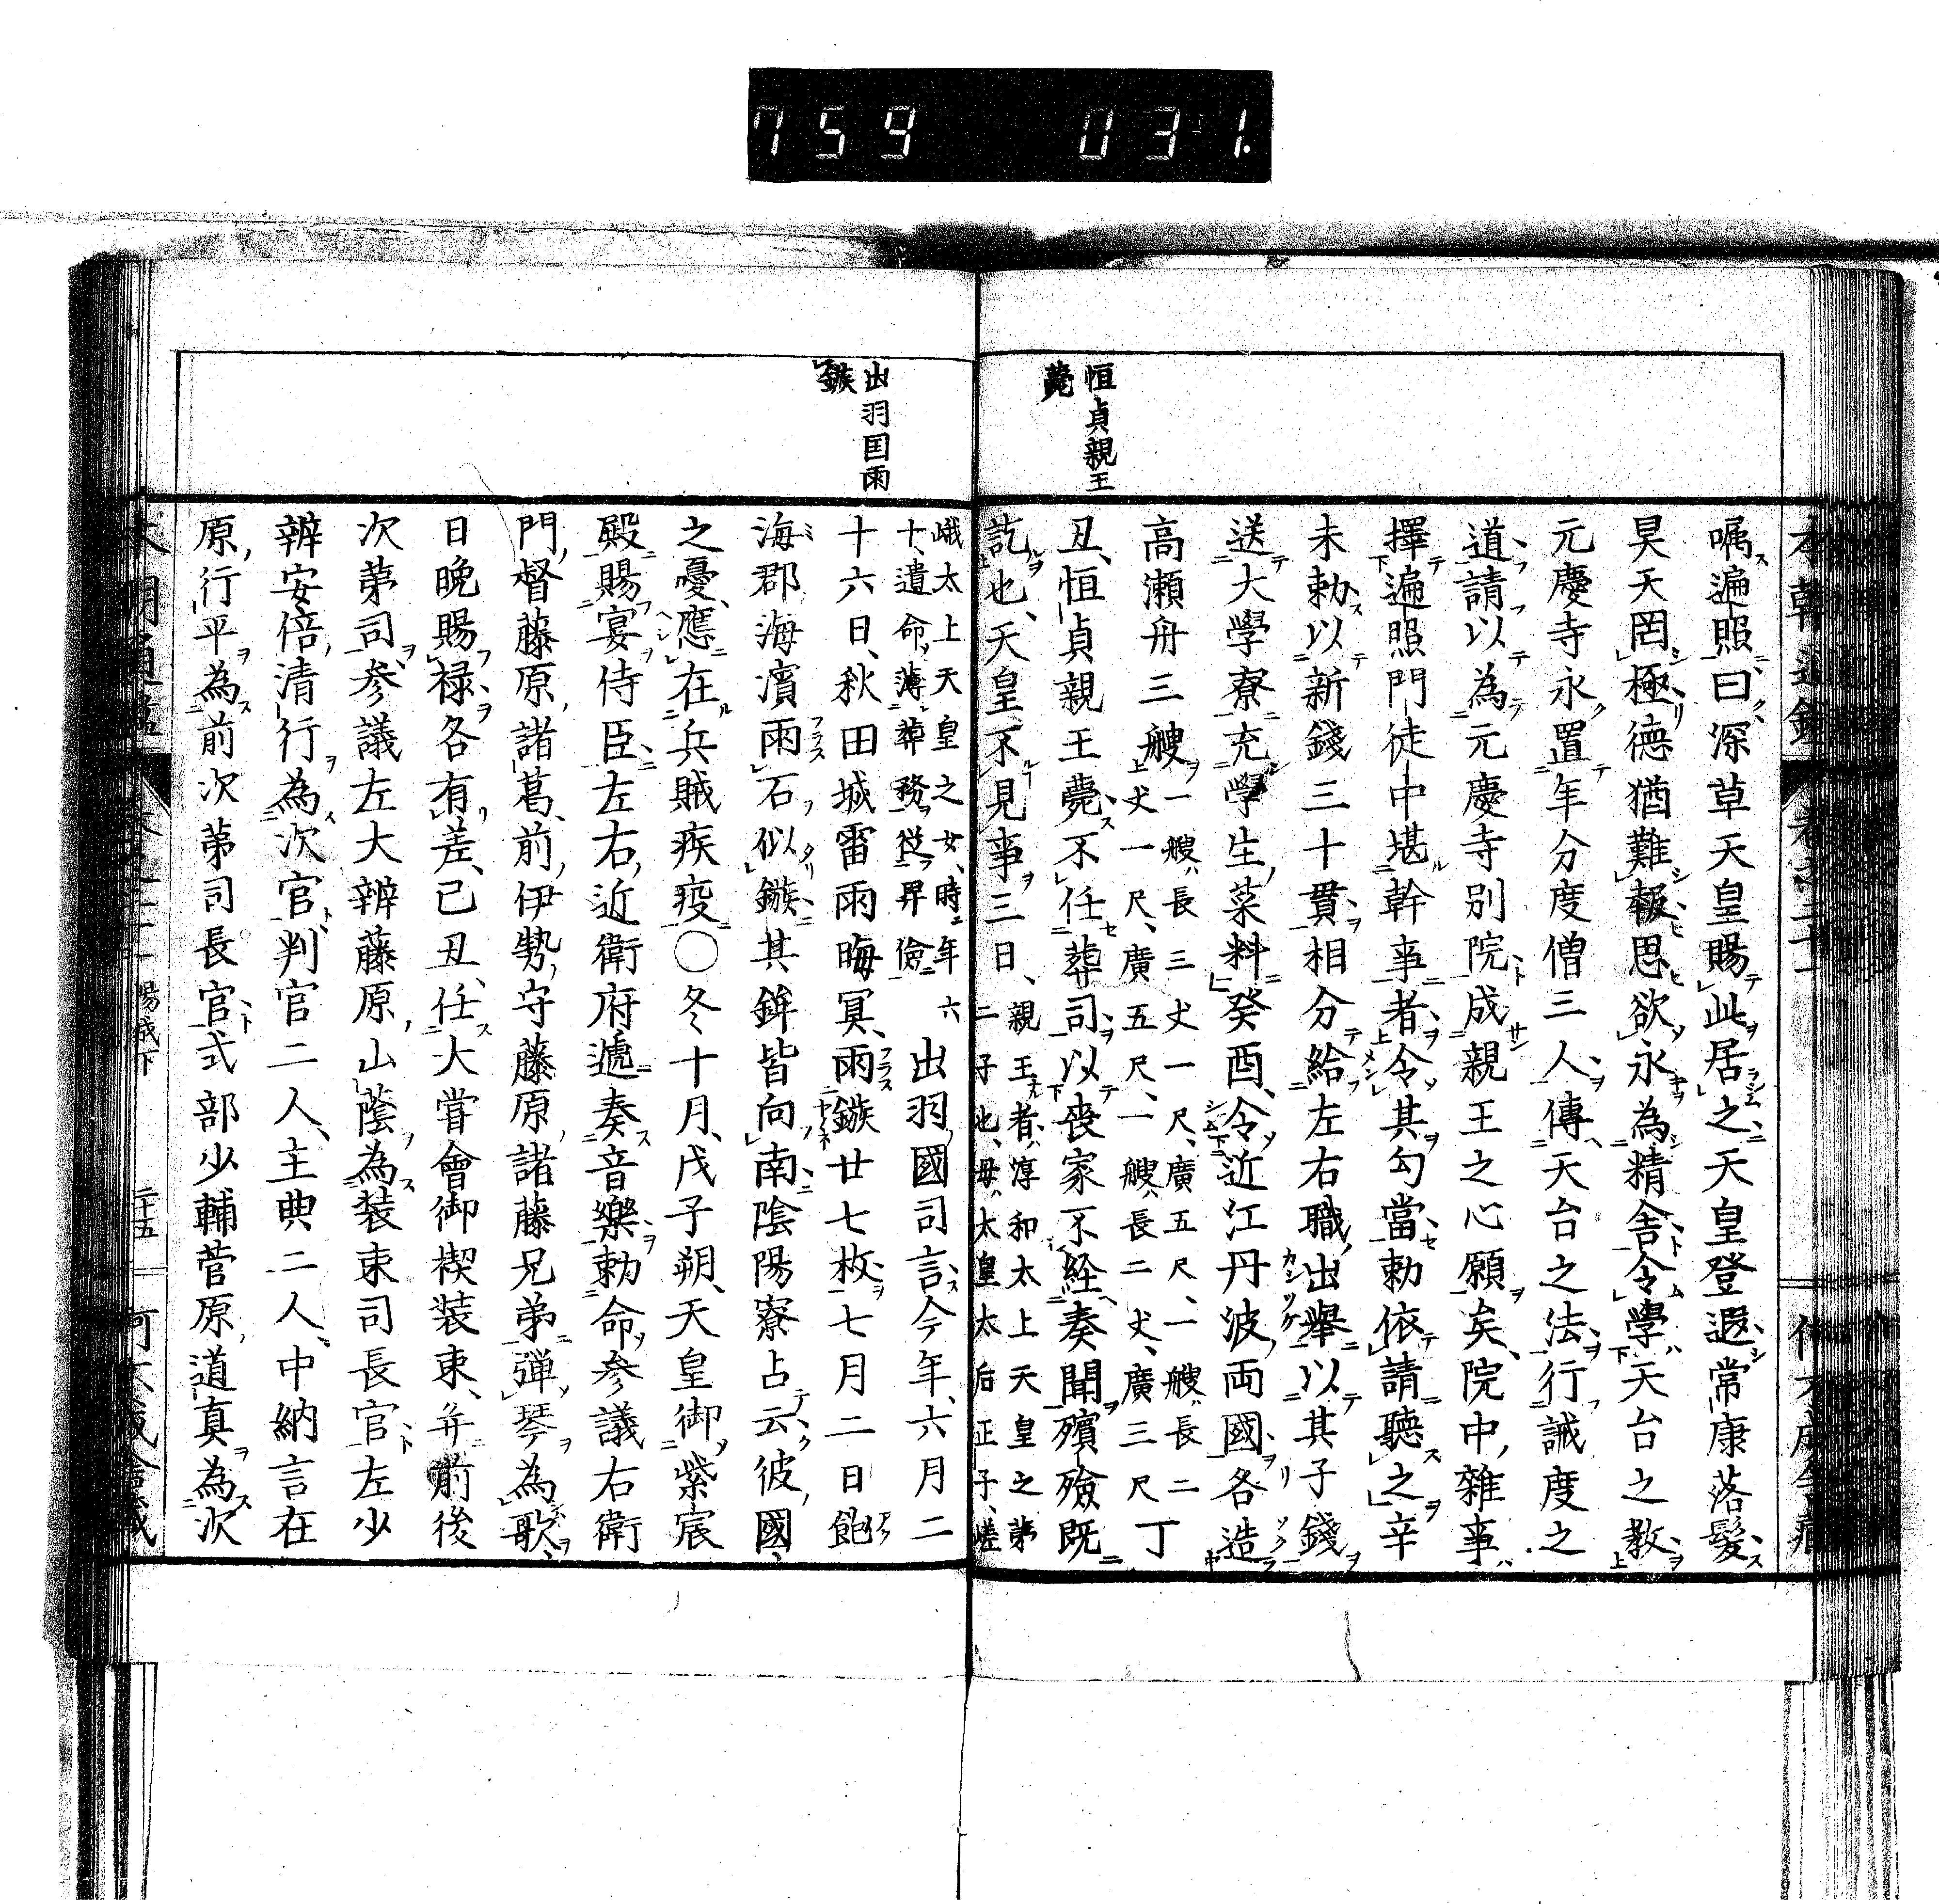 759 031.
恒貞親王
薨
嘱遍照曰深草天皇賜此居之天皇登遐常康落髮
昊天罔極徳猶難報思欲永為精舎令學天台之教
元慶寺永置年分度僧三人傳天台之法行誡度之
道請以為元慶寺別院成親王之心願矣院中雜事
擇遍照門徒中堪幹事者令其勾當勅依請聽之辛
未勅以新錢三十貫相分給左右職出舉以其子錢
送大學寮充學生菜料癸酉令近江丹波両國各造
高瀬舟三艘一艘長三丈一尺廣五尺一艘長二
丈一尺廣五尺一艘長二丈廣三尺丁
丑恒貞親王薨不任葬司以喪家不経奏聞殯殮既
訖也天皇不見事三日親王者淳和太上天皇之第
二子也母太皇太后正子嵯
出羽国雨
鏃
峨太上天皇之女時年六
十遺命薄葬務従昇儉出羽國司言今年六月二
十六日秋田城雷雨晦冥雨鏃廿七枚七月二日飽
海郡海濱雨石似鏃其鋒皆向南陰陽寮占云彼國
之憂應在兵賊疾疫〇冬十月戊子朔天皇御紫宸
殿賜宴侍臣左右近衛府遞奏音樂勅命参議右衛
門督藤原諸葛前伊勢守藤原諸藤兄弟弾琴為歌
日晩賜禄各有差己丑任大甞會御禊装束并前後
次第司参議左大辨藤原山蔭為装束司長官左少
辨安倍清行為次官判官二人主典二人中納言在
原行平為前次第司長官式部少輔菅原道真為次
本朝通鑑 陽成下 二十五